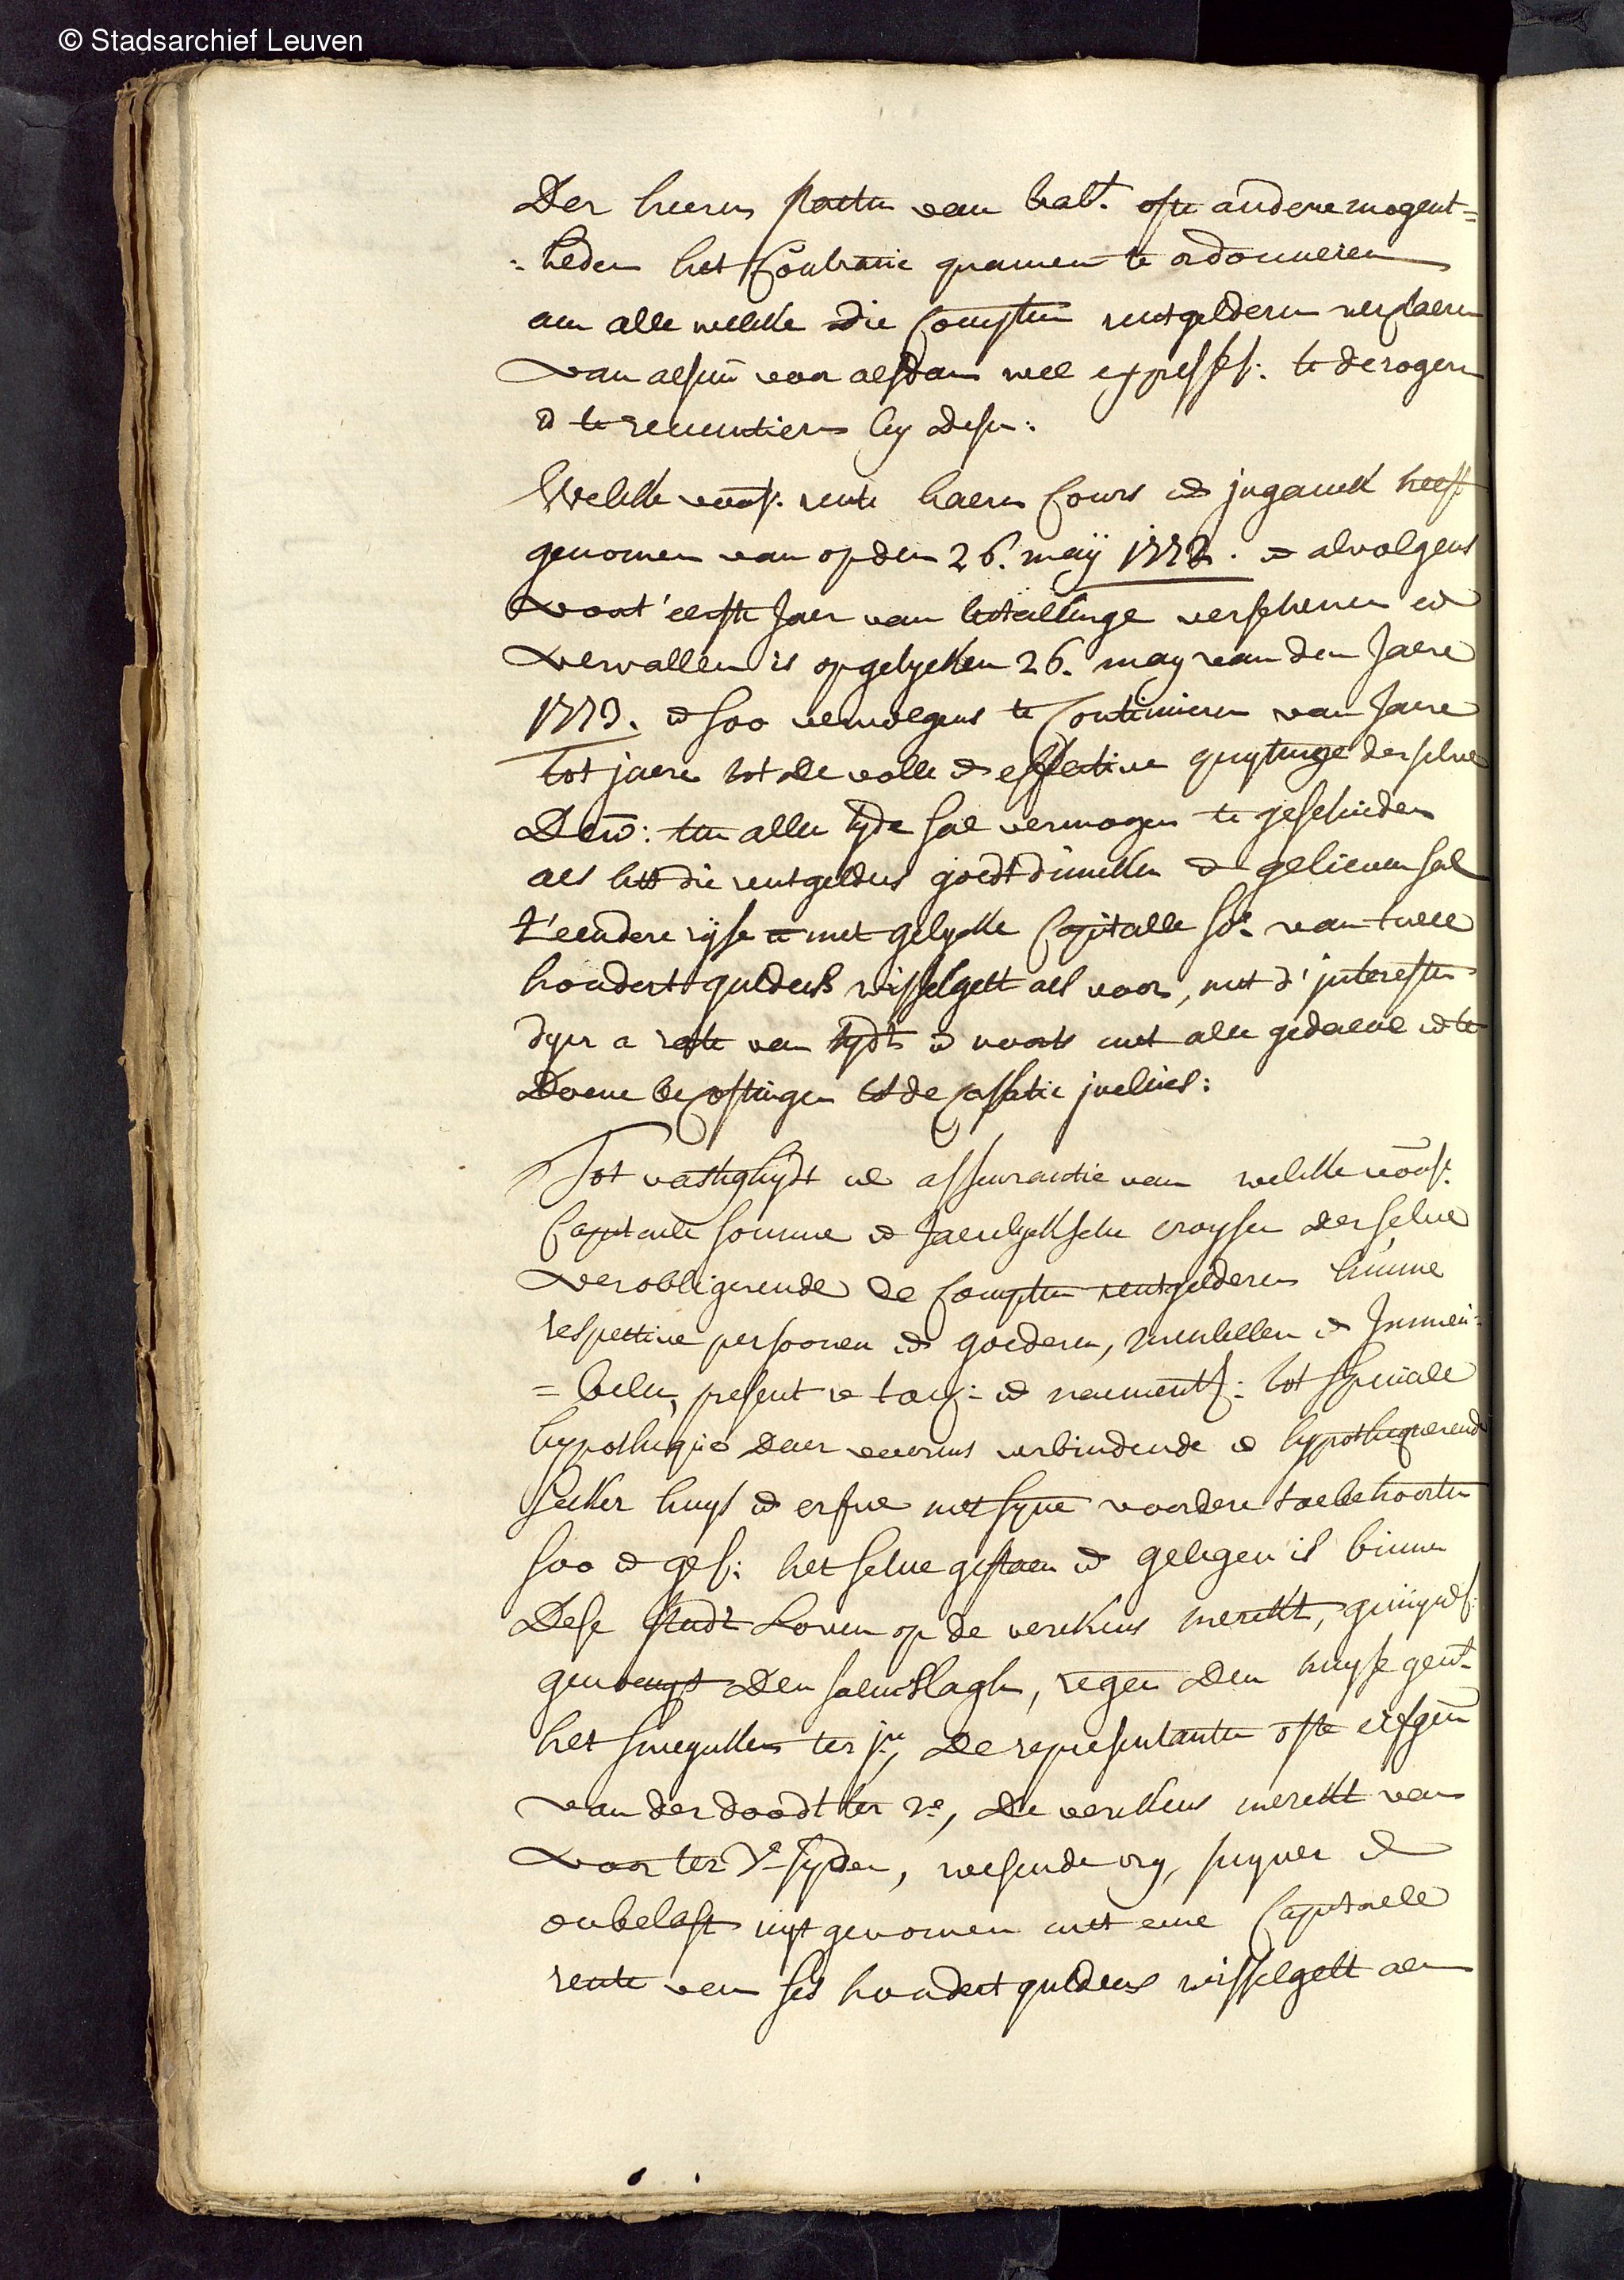 © Stadsarchief Leuven
Der heeren staeten van brab.t ofte andere mogent=
=heden het Contrarie quamen te ordonneren
aen alle welcke die Comp.ten rentgelderen verclaeren
van alsnu voor alsdan wel expressel: te derogeren
en te renuntieren by desen:
Welcke voors. rente haeren Cours en inganck heeft
genomen van op den 26. maÿ 1772. en alvolgens
voor t'eerste Jaer van betaelinge verschenen en
vervallen is op gelycken 26. may van den Jaere
1773. en soo vervolgens te Continueren van Jaere
tot jaere tot de volle en effective quytinge derselve
Dew: ten allen tyde sal vermogen te geschieden
als het die rentgelders goedt duncken en gelieven sal
t'eendere ryse met gelycke Capitaele so.e van twee
hondert guldens wisselgelt als voor, met d'interesten
dyer a rate van tydt en voorts met alle gedaene en te
Doene becostingen tot de Cassatie incluis:
Tot vastigheydt en asseurantie van welcke voors.
Capitaele somme en Jaerelyckschen croysen derselve
verobligerende de Comp.ten rentgelderen hunne
respective persoonen en goederen, meubelen en Immeu=
=belen, present en toec: en naementl: tot speciale
hypotheque daer vooren verbindende en hypothequerende
seker huys en erfve met syne vordere toebehoorten
soo en gel: het selve gestaen en gelegen is binnen
Dese stadt Loven op de verckens merckt,
genoempt Den salmslagh, regen. Den huyse gen.t
het smeyncken ter j.e, De representanten ofte erfgen
van der doodt ter 2.e, de verckens merckt van
voor ter 3.e syden, wesende vry, suyver en
onbelast uyt genomen met eene Capitaele
rente van ses hondert guldens wisselgelt aen